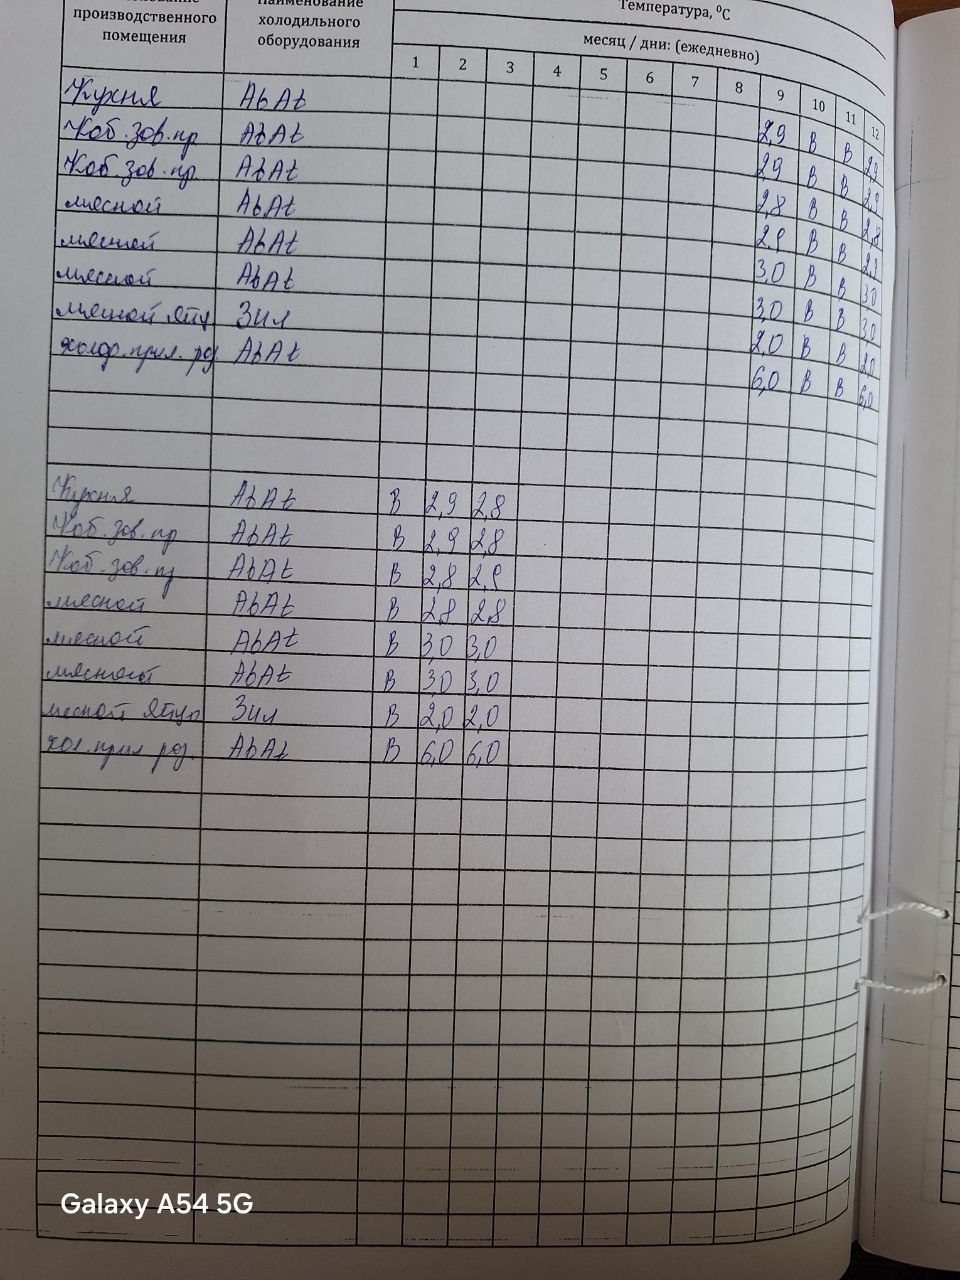 производственного помещения
Наименование холодильного оборудования
Температура, ⁰С
месяц / дни: (ежедневно)
1 2 3 4 5 6 7 8 9 10 11 12
Кухня Abat 2,9 В В 2,9
Коб. зов. пр Abat 2,9 В В 2,9
Коб. зов. пр. Abat 2,8 В В 2,8
мясной Abat 2,9 В В 2,9
мясной Abat 3,0 В В 3,0
мясной Abat 3,0 В В 3,0
мясной яйц Зил 2,0 В В 2,0
прил. рз Abat 6,0 В В 6,0
Кухня Abat В 2,9 2,8
Коб. зов. пр Abat В 2,9 2,8
Коб. зов. пр Abat В 2,8 2,9
мясной Abat В 2,8 2,8
мясной Abat В 3,0 3,0
мясной Abat В 3,0 3,0
мясной яйц Зил В 2,0 2,0
хол. прил рз. Abat В 6,0 6,0
Galaxy A54 5G